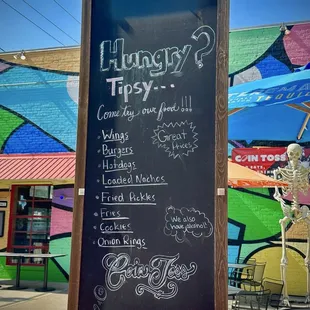 Hungry?
Tipsy...
Come try our food!!!
Wings
Great
Burgers
Hotdogs
Loaded Nachos
Fried Pickles
Fries
We also
have
Cookies
Onion Rings
Coin Toss
COIN TOSS